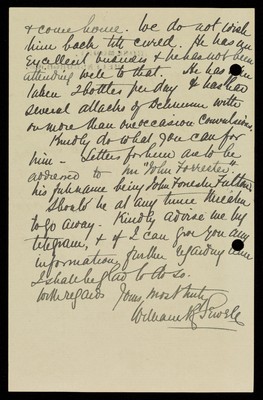 & come home. We do not wish
him back till cured. He has an
excellent business & he has not been
attending well to that. He has been
taken 2 bottles per day & has had
several attacks of Delirium with
on more than one occasion convulsions.
Kindly do what you can for
him - Letters for him are to be
addressed to Mr John Forrester.
his full name being John Forrester Fulton.
Should he at any time threaten
to go away. Kindly advise me by
telegram, & if I can give you any
information further regarding him
I shall be glad to do so.
With regards Yours most truly
William